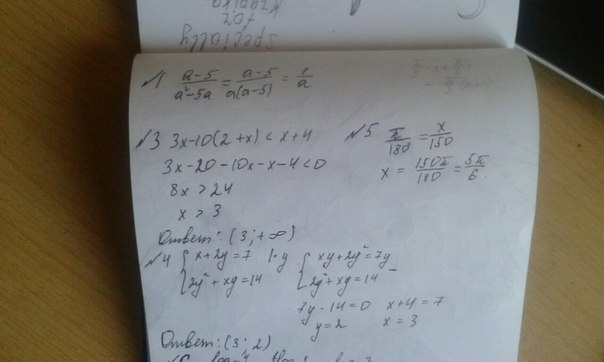 specially
for
№1 (a-5)/(a²-5a) = (a-5)/(a(a-5)) = 1/a
№3 3x-10(2+x) < x+4
3x-20-10x-x-4<0
8x > 24
x > 3
Ответ: (3; +∞)
№5 π/180 = x/150
x = 150π/180 = 5π/6.
№4 { x+2y=7 |·y
2y²+xy=14
{ xy+2y²=7y
2y²+xy=14 −
7y-14=0 x+4=7
y=2 x=3
Ответ: (3; 2)